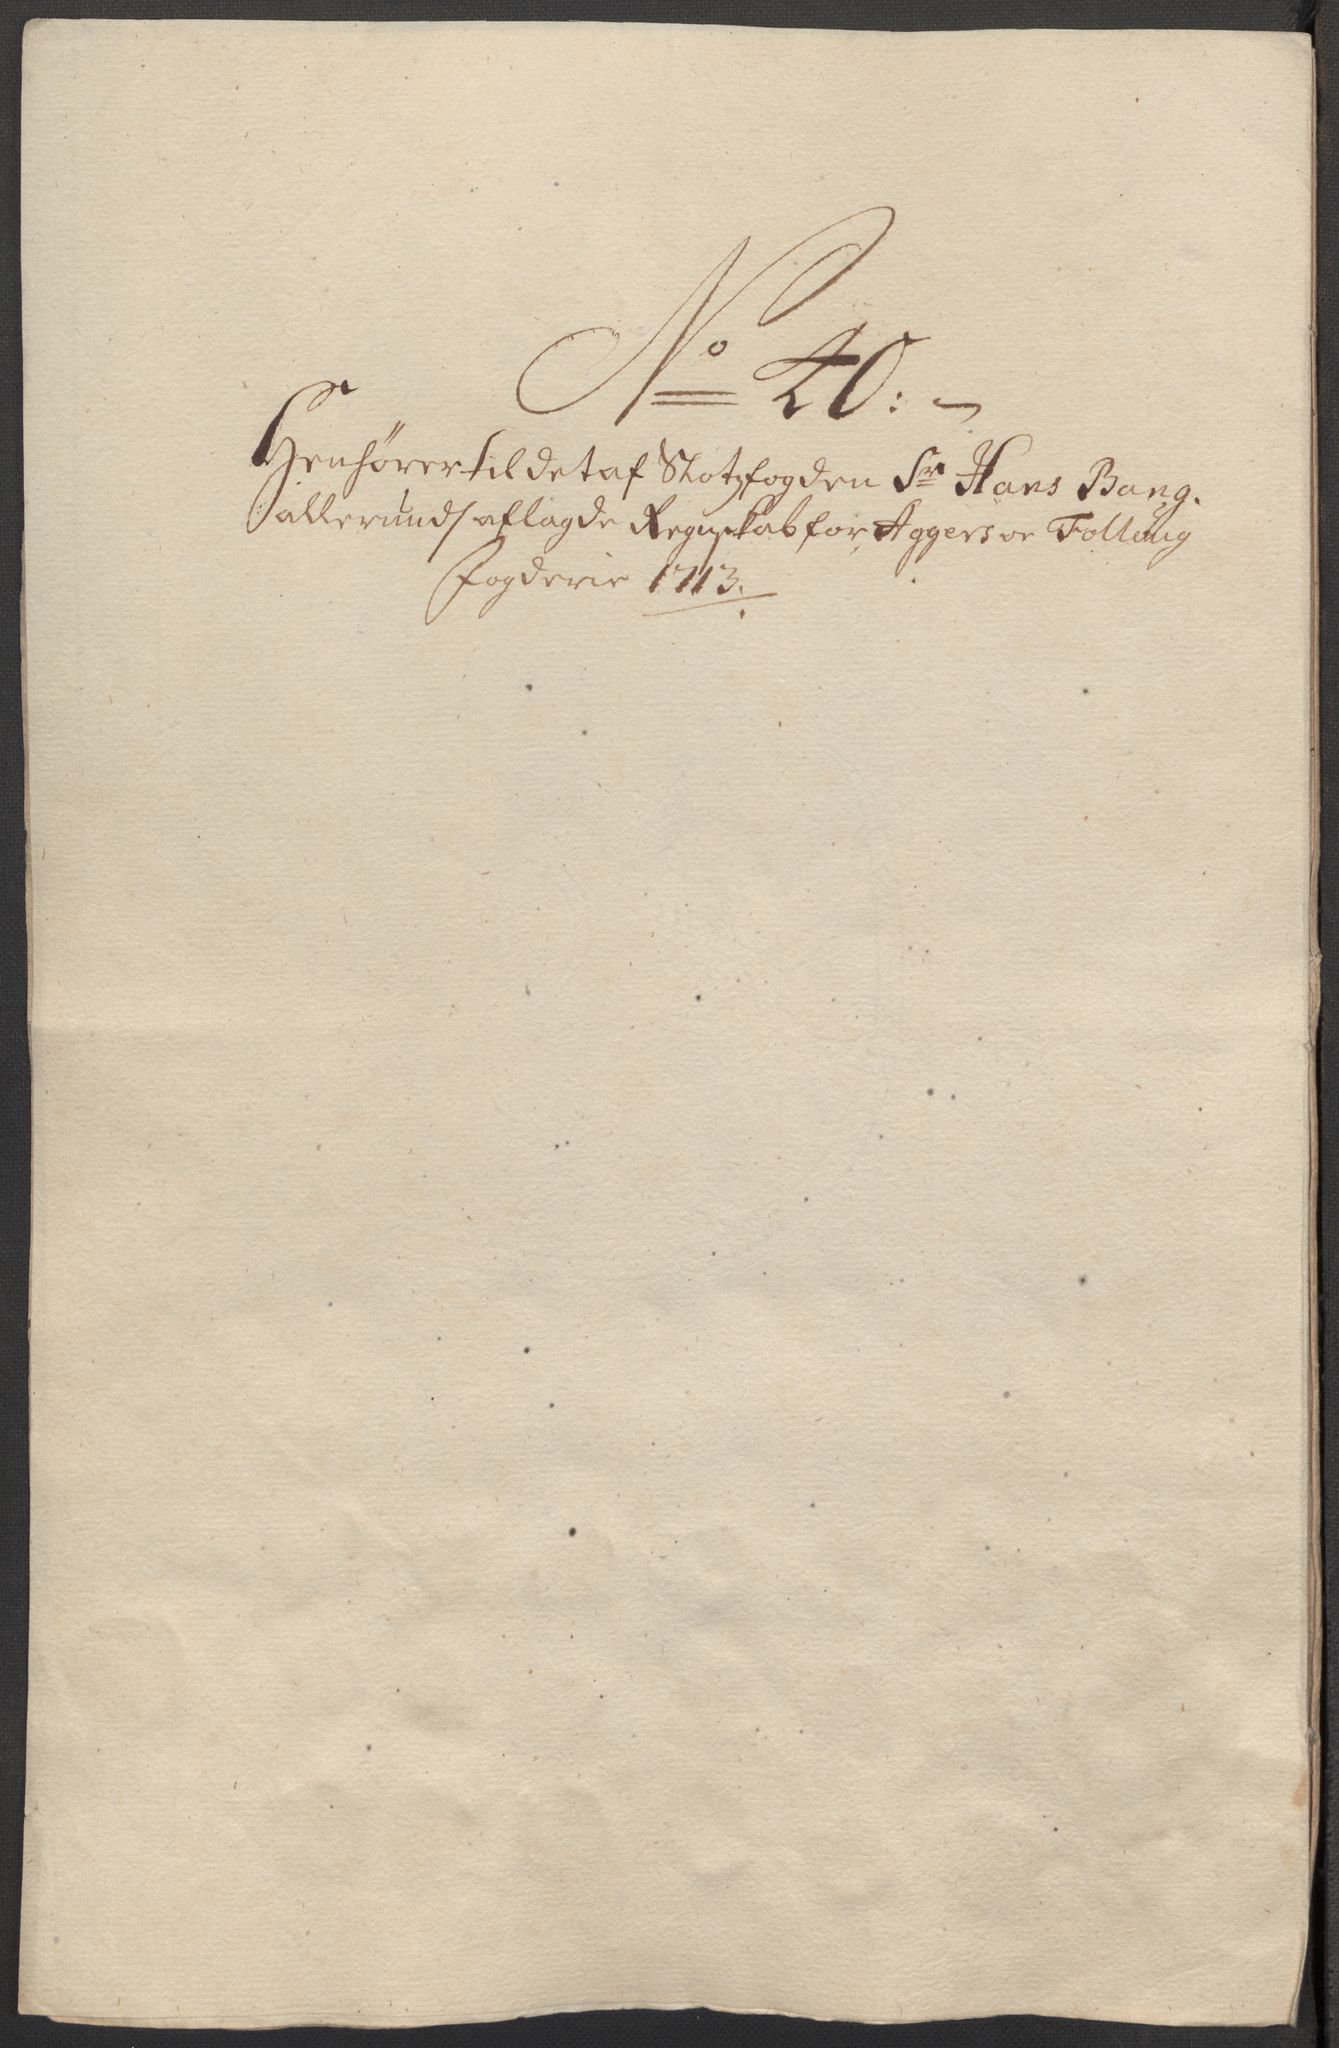 No 40:
Henhører til det af Slotzfogden Sr Hans Bang.
allerund: aflagde Regnskab for Aggers oc Folloug
fogderie 1713.